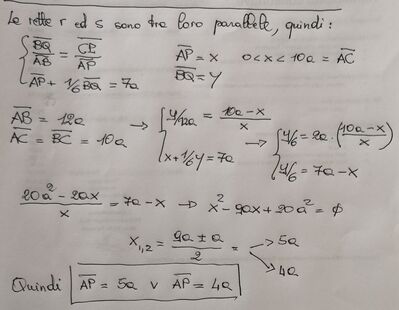 Le rette r ed s sono tra loro parallele, quindi:
{ BQ/AB = CP/AP    AP = x    0<x<10a = AC
{ AP + 1/6 BQ = 7a    BQ = y
AB = 12a → { y/12a = (10a-x)/x
AC = BC = 10a    { x + 1/6 y = 7a → { y/6 = 2a·((10a-x)/x)
{ y/6 = 7a-x
(20a² - 20ax)/x = 7a-x → x² - 9ax + 20a² = ø
x1,2 = (9a ± a)/2 = → 5a
→ 4a
Quindi AP = 5a ∨ AP = 4a